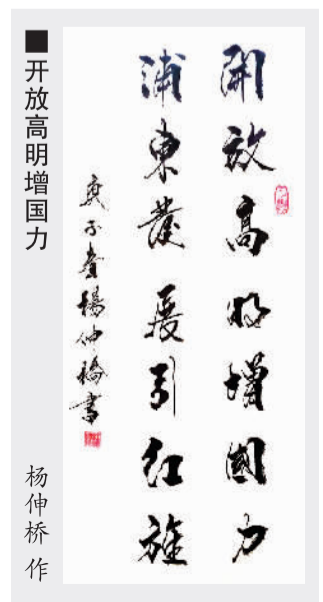 ■开放高明增国力
杨伸桥 作
開放高明增國力
浦東發展引紅旌
庚子春楊伸橋書